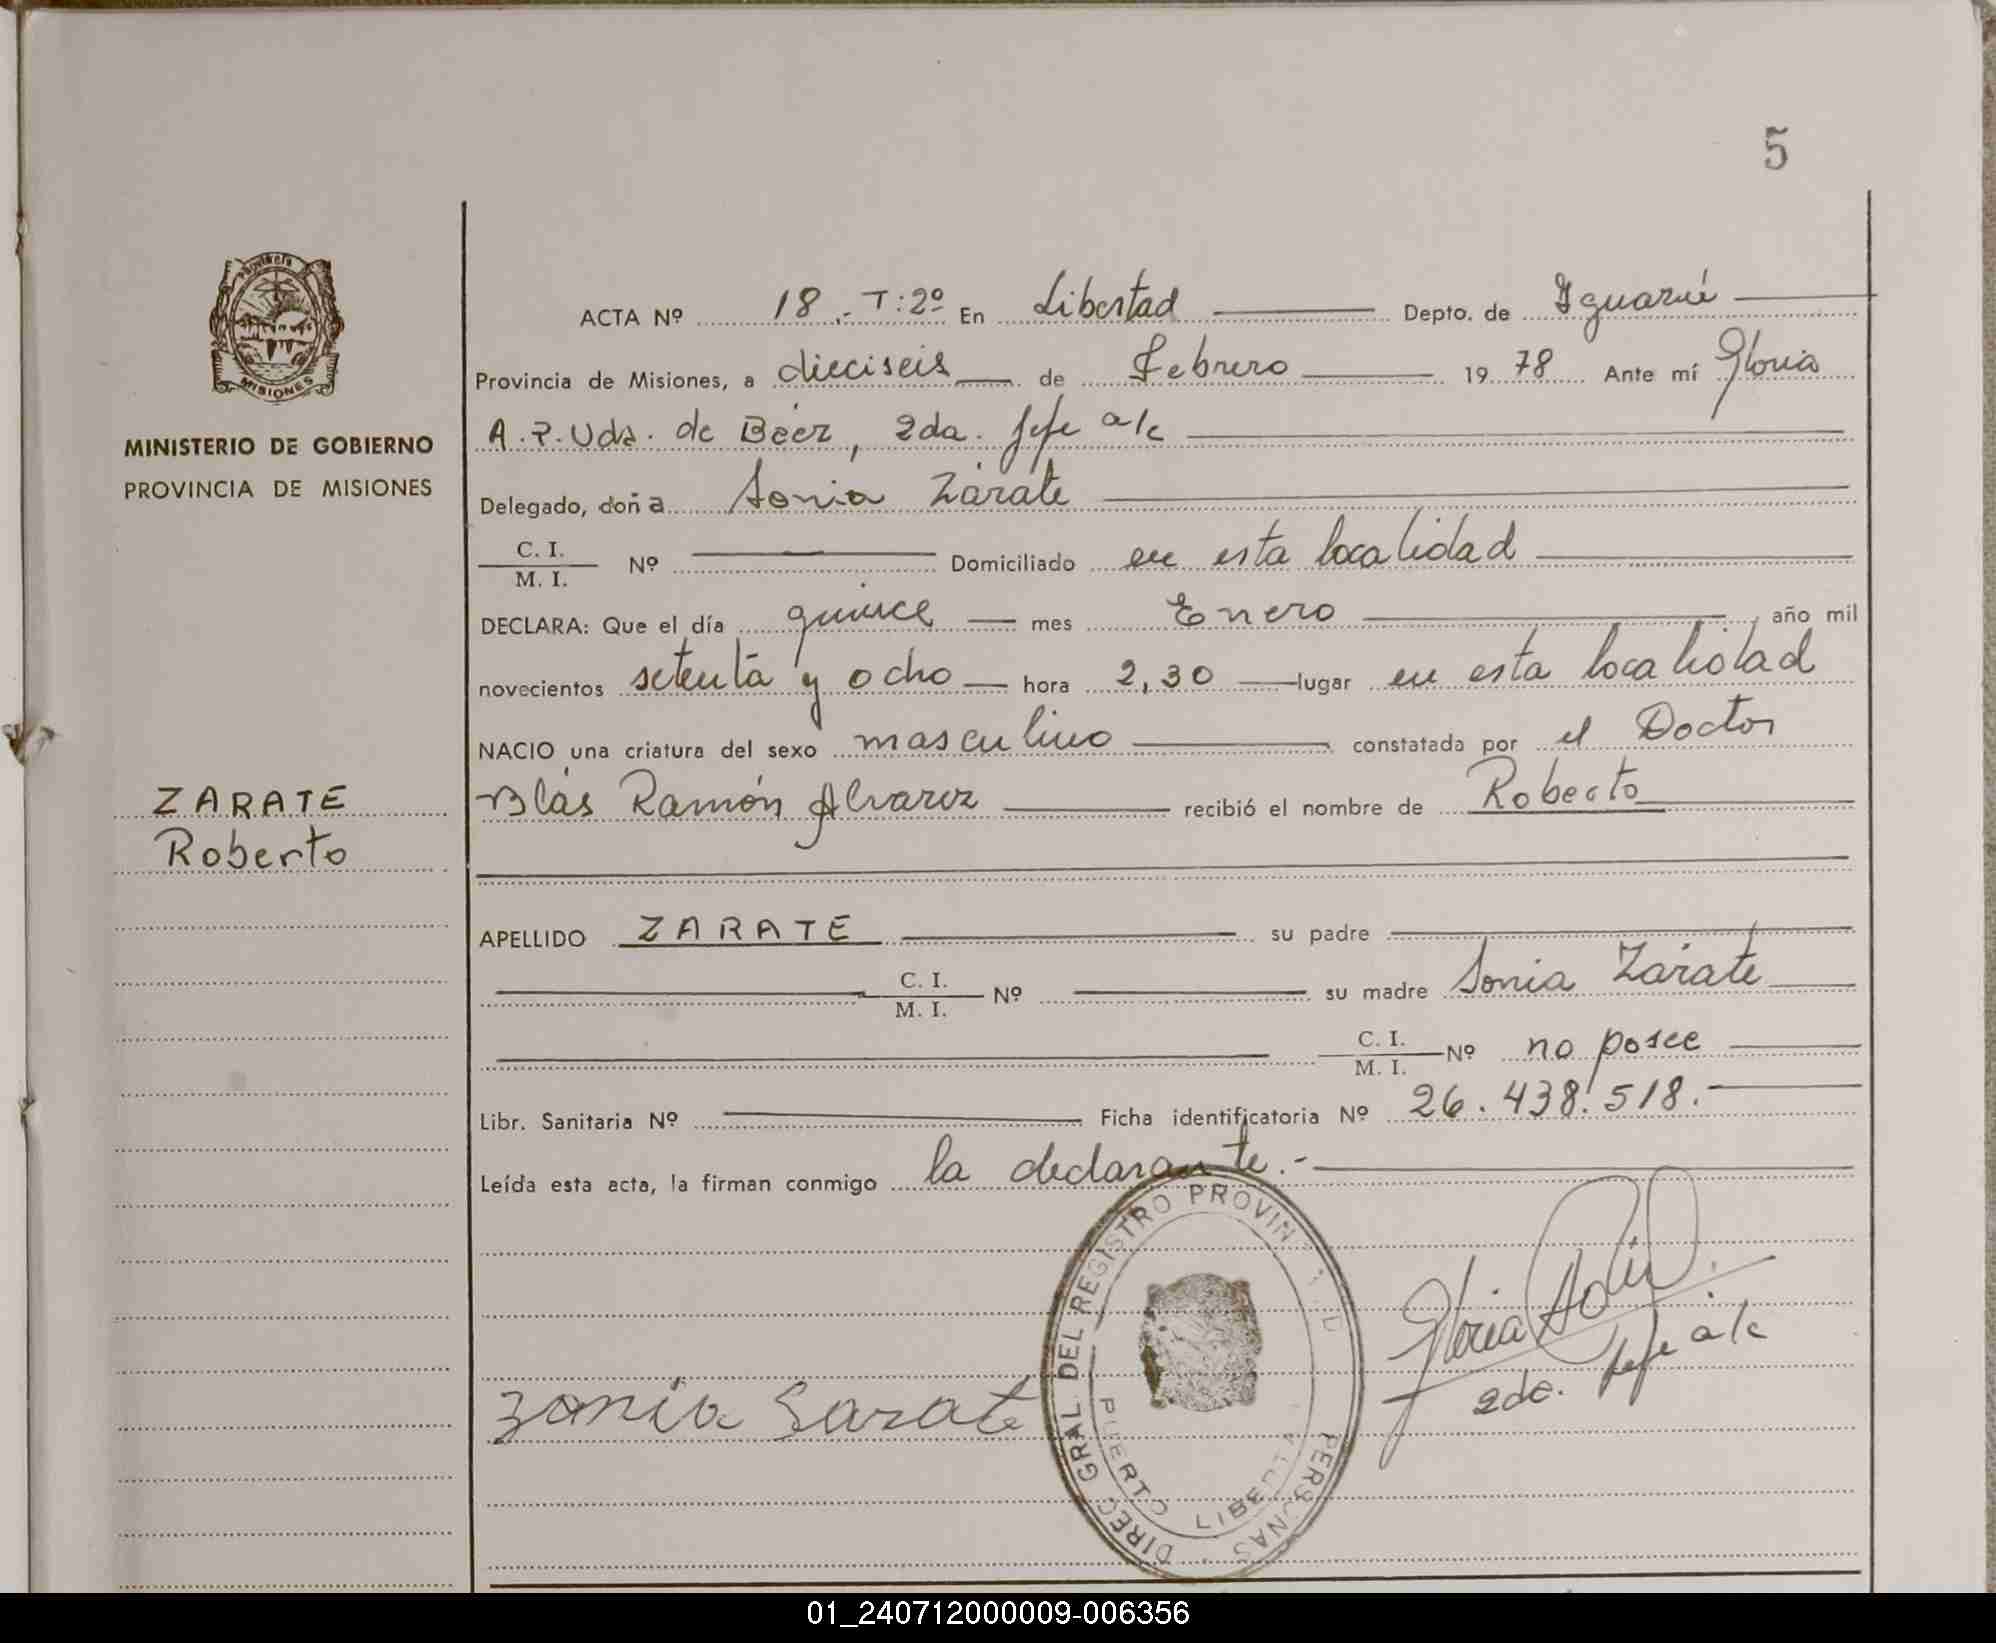 5
Provincia
MISIONES
MINISTERIO DE GOBIERNO
PROVINCIA DE MISIONES
ZARATE
Roberto
ACTA Nº 18.- T: 2º En Libertad Depto. de Iguazú
Provincia de Misiones, a dieciseis de Febrero 1978 Ante mí Gloria
A. P. Vda. de Beer, 2da. Jefe a/c
Delegado, doña Sonia Zárate
C. I.
M. I. Nº Domiciliado en esta localidad
DECLARA: Que el día quince mes Enero, año mil
novecientos setenta y ocho hora 2,30 lugar en esta localidad
NACIO una criatura del sexo masculino constatada por el Doctor
Blás Ramón Alvarez recibió el nombre de Roberto
APELLIDO ZARATE su padre
C. I.
M. I. Nº su madre Sonia Zárate
C. I.
M. I. Nº no posee
Libr. Sanitaria Nº Ficha identificatoria Nº 26.438.518.-
Leída esta acta, la firman conmigo la declarante.-
DIREC GRAL DEL REGISTRO PROVIN PERSONAS
PUERTO LIBERTAD
Gloria
2da. Jefe a/c
Zonia Sarate
01_240712000009-006356